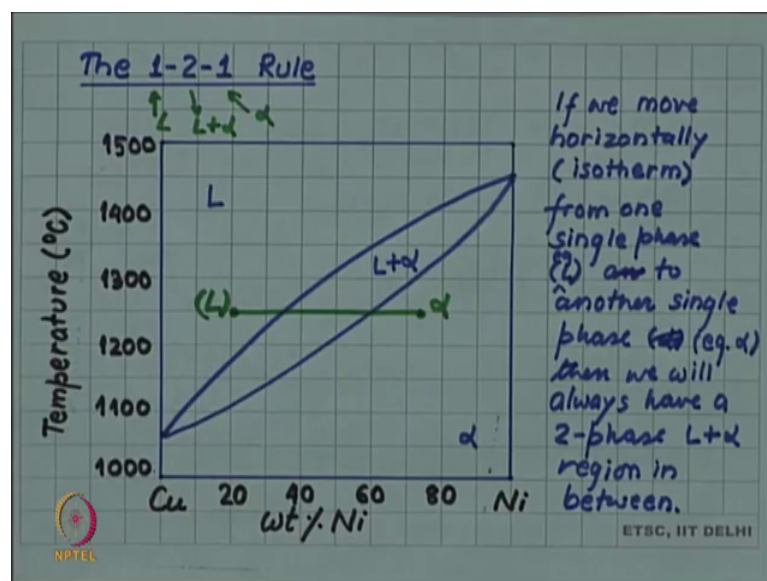 The 1-2-1 Rule
L L+α α
1500
1400
1300
1200
1100
1000
Temperature (°C)
L
L+α
(L) α
α
Cu 20 40 60 80 Ni
wt % Ni
If we move
horizontally
(isotherm)
from one
single phase
(L) to
another single
phase (eg. α)
then we will
always have a
2-phase L+α
region in
between.
NPTEL
ETSC, IIT DELHI